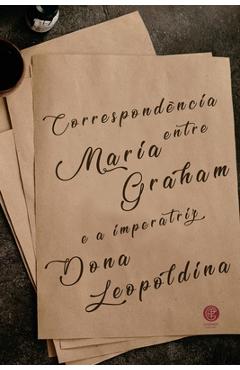 Correspondência
entre
Maria
Graham
e a imperatriz
Dona
Leopoldina